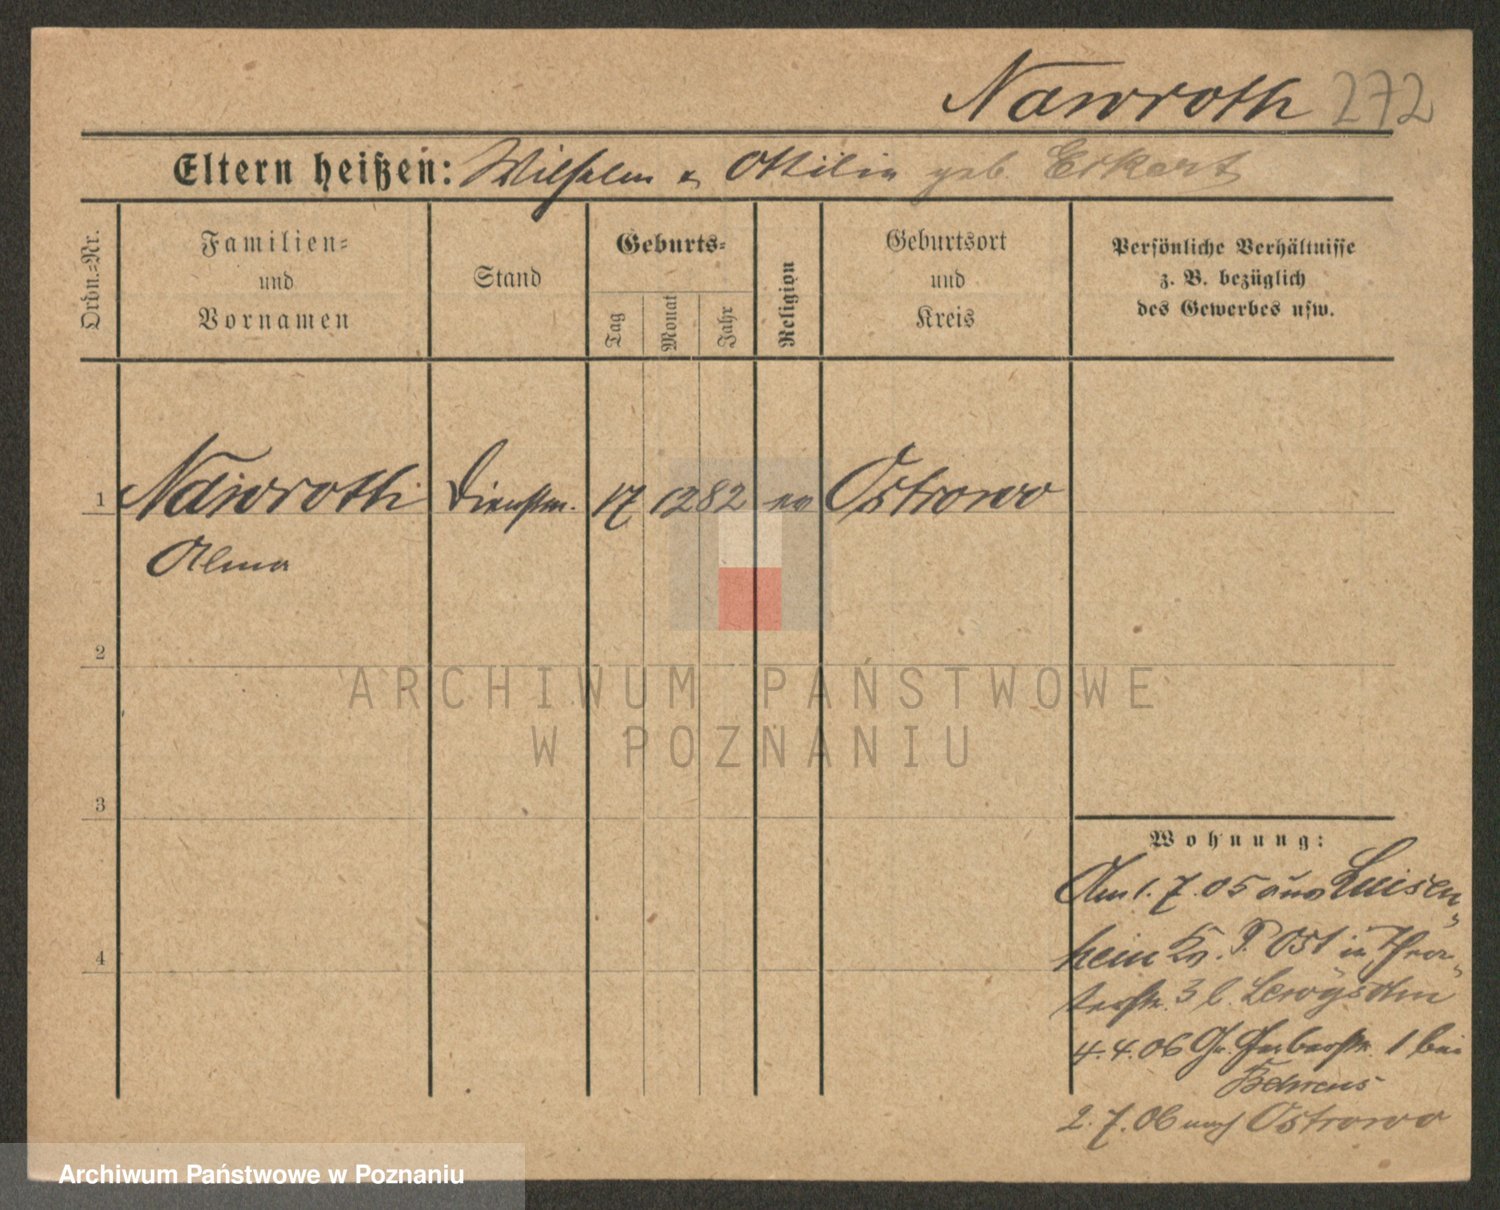 Nawroth 272
Eltern heißen: Wilhelm u Ottilie geb. Eckert
Ordn.=Nr.
Familien=
und
Vornamen
Stand
Geburts=
Tag
Monat
Jahr
Religion
Geburtsort
und
Kreis
Persönliche Verhältnisse
z. B. bezüglich
des Gewerbes usw.
1 Nawroth Dienstm. 17 12 82 ev Ostrowo
Alma
2
3
4
Wohnung:
Am 1. 7. 05 aus Luisen
hein Kr. P. Ost in
3 b.
4. 4. 06 Gr. Gerberstr. 1 bei
Behrens
2. 7. 06 nach Ostrowo
ARCHIWUM PAŃSTWOWE
W POZNANIU
Archiwum Państwowe w Poznaniu